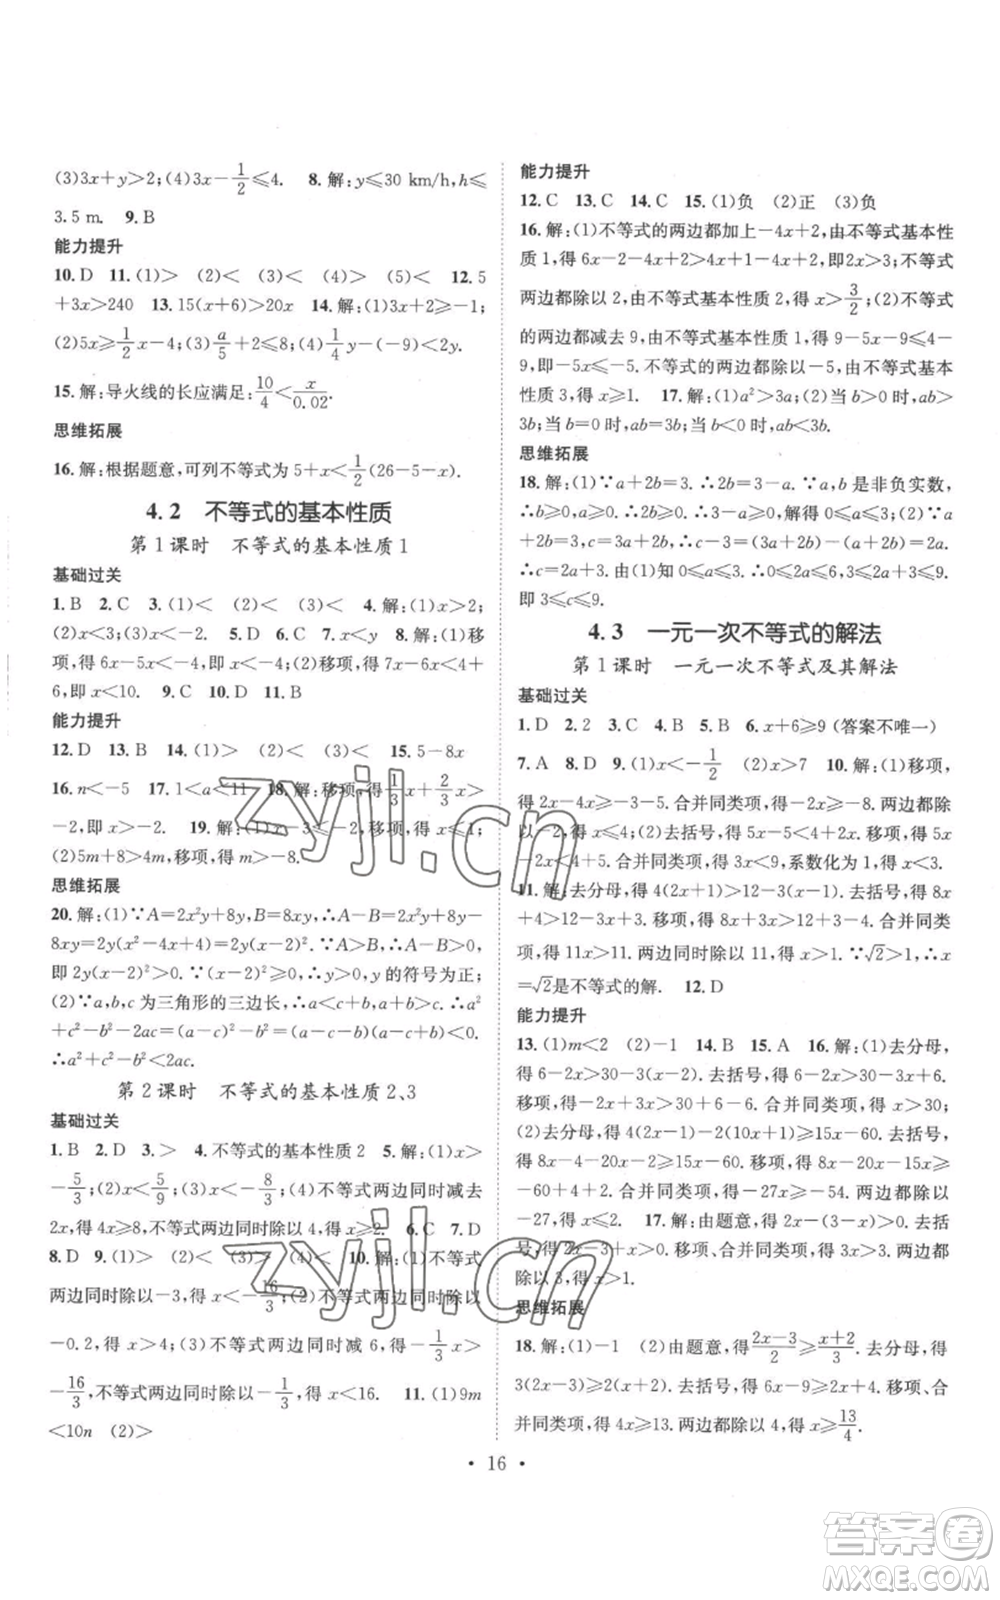 (3)3x+y>2;(4)3x-1/2≤4.  8.解:y≤30 km/h,h≤
3.5 m.  9.B
能力提升
10.D  11.(1)>  (2)<  (3)<  (4)<  12.5
+3x>240  13.15(x+6)>20x  14.解:(1)3x+2≥-1;
(2)5x≥1/2x-4;(3)a/5+2≤8;(4)1/4y-(-9)<2y.
15.解:导火线的长应满足:10/4<x/0.02.
思维拓展
16.解:根据题意,可列不等式为5+x<1/2(26-5-x).
4.2  不等式的基本性质
第1课时  不等式的基本性质1
基础过关
1.B  2.C  3.(1)<  (2)<  (3)<  4.解:(1)x>2;
(2)x<3;(3)x<-2.  5.D  6.D  7.x<y  8.解:(1)移
项,得6x-5x>-4,即x>-4.(2)移项,得7x-6x<10,
即x<10.  9.C  10.D  11.B
能力提升
12.D  13.B  14.(1)>  (2)<  (3)<  15.5-8x
16.n<-5  17.1<a<11  18.解:移项,得1/3x+2/3x>
-2,即x>-2.  19.解:(1)x-3≤-2,移项,得x≤1;
(2)5m+8>4m,移项,得m>-8.
思维拓展
20.解:(1)∵A=2x²y+8y,B=8xy,∴A-B=2x²y+8y-
8xy=2y(x²-4x+4)=2y(x-2)²>0.∵A>B,∴A-B>0,
即2y(x-2)²>0.∵x≠2,∴(x-2)²>0,∴y的符号为正;
(2)∵a,b,c为三角形的三边长,∴a<c+b,a+b>c.∴a²
+c²-b²-2ac=(a-c)²-b²=(a-c-b)(a-c+b)<0.
∴a²+c²-b²<2ac.
第2课时  不等式的基本性质2、3
基础过关
1.B  2.D  3.>  4.不等式的基本性质2  5.解:(1)x>
-5/3;(2)x<5/9;(3)x<-8/3;(4)不等式两边同时减去
2x,得4x≥8,不等式两边同时除以4,得x≥2.  6.C  7.D
8.D  9.(1)>  (2)<  (3)>  (4)<  10.解:(1)不等式
两边同时除以-3,得x<-16/3;(2)不等式两边同时除以
-0.2,得x>4;(3)不等式两边同时减6,得-1/3x>
-16/3,不等式两边同时除以-1/3,得x<16.  11.(1)9m
<10n  (2)>
能力提升
12.C  13.C  14.C  15.(1)负  (2)正  (3)负
16.解:(1)不等式的两边都加上-4x+2,由不等式基本性
质1,得6x-2-4x+2>4x+1-4x+2,即2x>3;不等式
两边都除以2,由不等式基本性质2,得x>3/2;(2)不等式
的两边都减去9,由不等式基本性质1,得9-5x-9≤4-
9,即-5x≤-5.不等式两边都除以-5,由不等式基本
性质3,得x≥1.  17.解:(1)a²>3a;(2)当b>0时,ab>
3b;当b=0时,ab=3b;当b<0时,ab<3b.
思维拓展
18.解:(1)∵a+2b=3.∴2b=3-a.∵a,b是非负实数,
∴b≥0,a≥0.∴2b≥0.∴3-a≥0.解得0≤a≤3;(2)∵
a+2b=3.∴2b=3-a.∴c=3a+2b=3a+3-a=2a+3.
∴c=2a+3.由(1)知0≤a≤3.∴0≤2a≤6.∴3≤2a+3≤9.
即3≤c≤9.
4.3  一元一次不等式的解法
第1课时  一元一次不等式及其解法
基础过关
1.D  2.2  3.C  4.B  5.B  6.x+6≥9(答案不唯一)
7.A  8.D  9.(1)x<-1/2  (2)x>7  10.解:(1)移项,
得2x-4x≥-5-3.合并同类项,得-2x≥-8.两边都除
以-2,得x≤4;(2)去括号,得5x-5<4+2x.移项,得5x
-2x<4+5.合并同类项,得3x<9,系数化为1,得x<3.
11.解:去分母,得4(2x+1)>12-3(x-1).去括号,得8x
+4>12-3x+3,移项,得8x+3x>12+3-4,合并同类
项,得11x>11.两边同时除以11,得x>1.∵√2>1,∴x
=√2是不等式的解.  12.D
能力提升
13.(1)m<2  (2)-1  14.B  15.A  16.解:(1)去分母,
得3(x-2)≥2(7-x).去括号,得3x-6≥14-2x.
移项,得3x+2x≥14+6.合并同类项,得5x≥20,得x≥4;
(2)去分母,得
移项,得
-60+4+2.合并同类项,得-27x≥-54.两边都除以
-27,得x≤2.  17.解:由题意,得2x-(3-x)>0.去括
号,得2x-3+x>0.移项合并同类项,得3x>3.两边都
除以3,得x>1.
思维拓展
18.解:(1)-1  (2)由题意,得(2x-3)/2≥(x+2)/3.去分母,得
3(2x-3)≥2(x+2).去括号,得6x-9≥2x+4.移项、合
并同类项,得4x≥13.两边都除以4,得x≥13/4.
• 16 •
zyjl.cn
zyjl.cn
答案圈
MXQE.COM